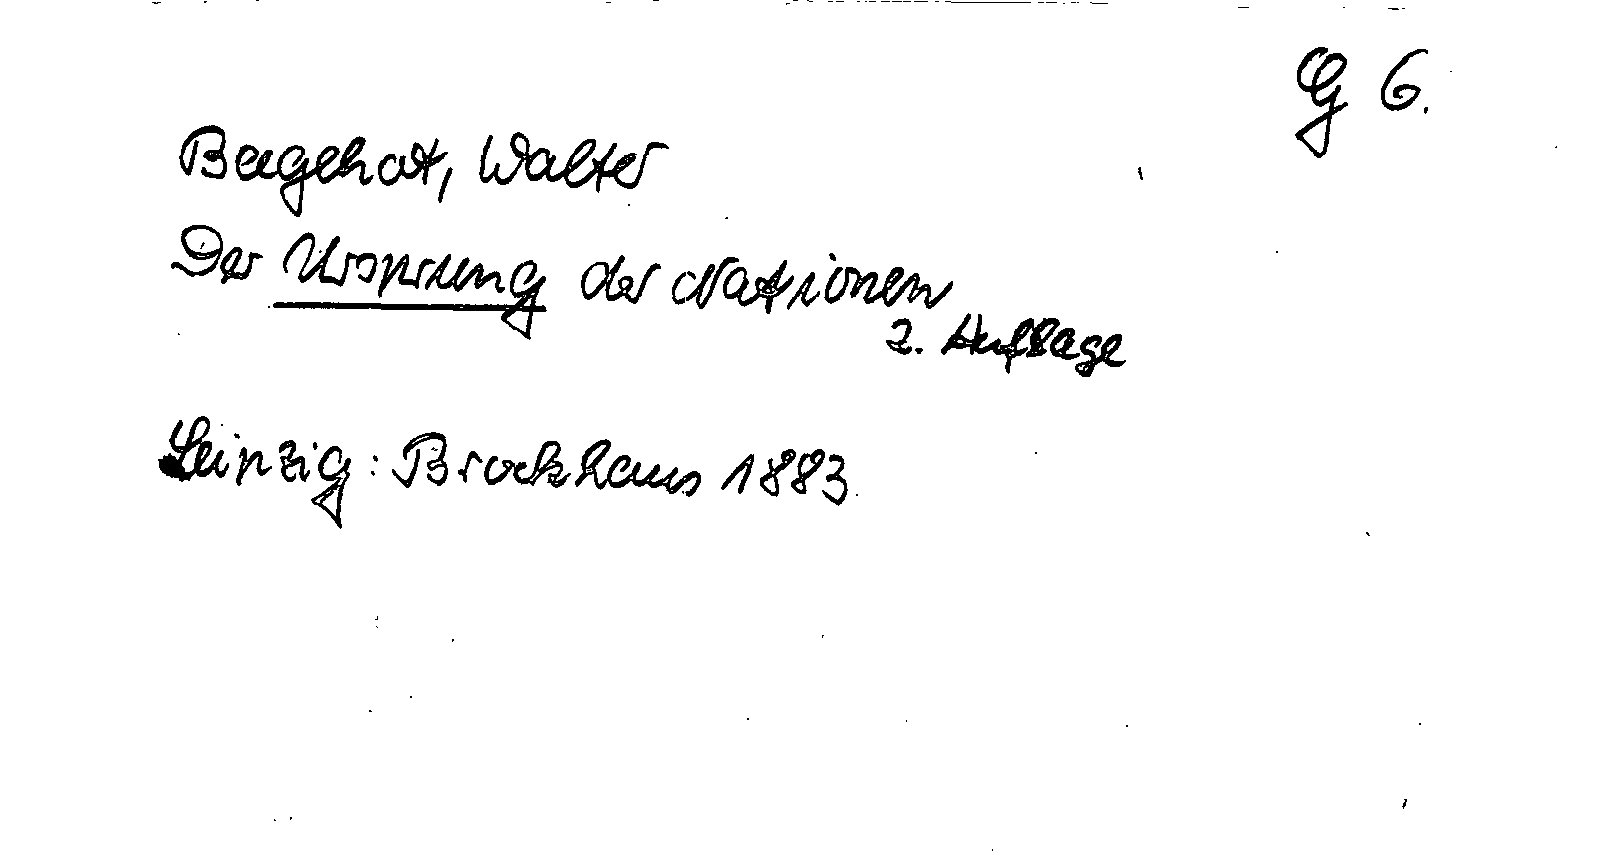 G 6.
Bagehot, Walter
Der Ursprung der Nationen
2. Auflage
Leipzig: Brockhaus 1883